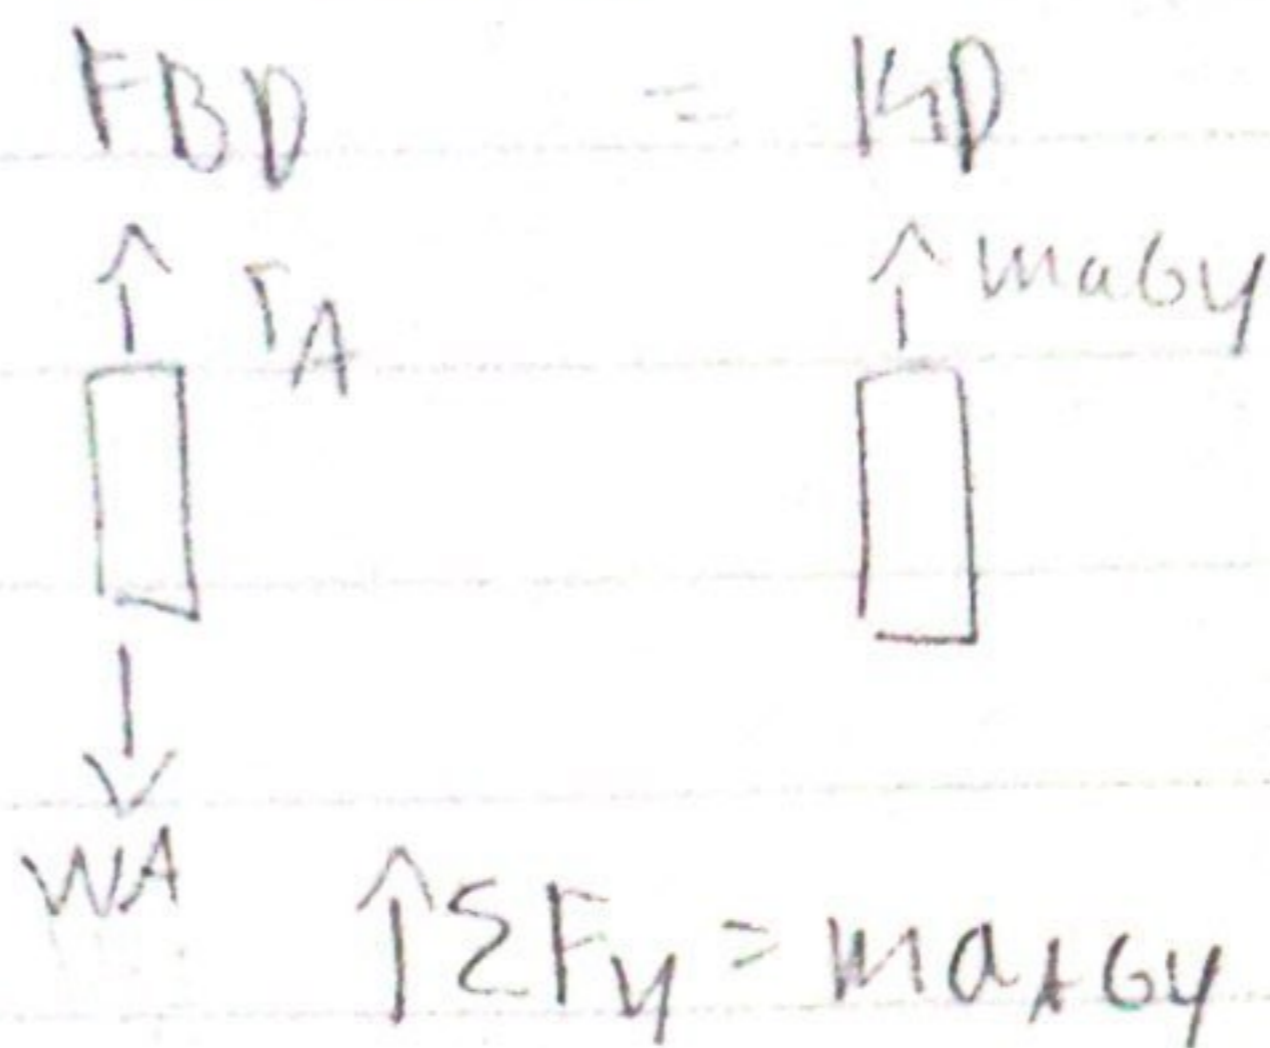 FBD = KD
TA maGy
WA ↑ΣFy = maAGy